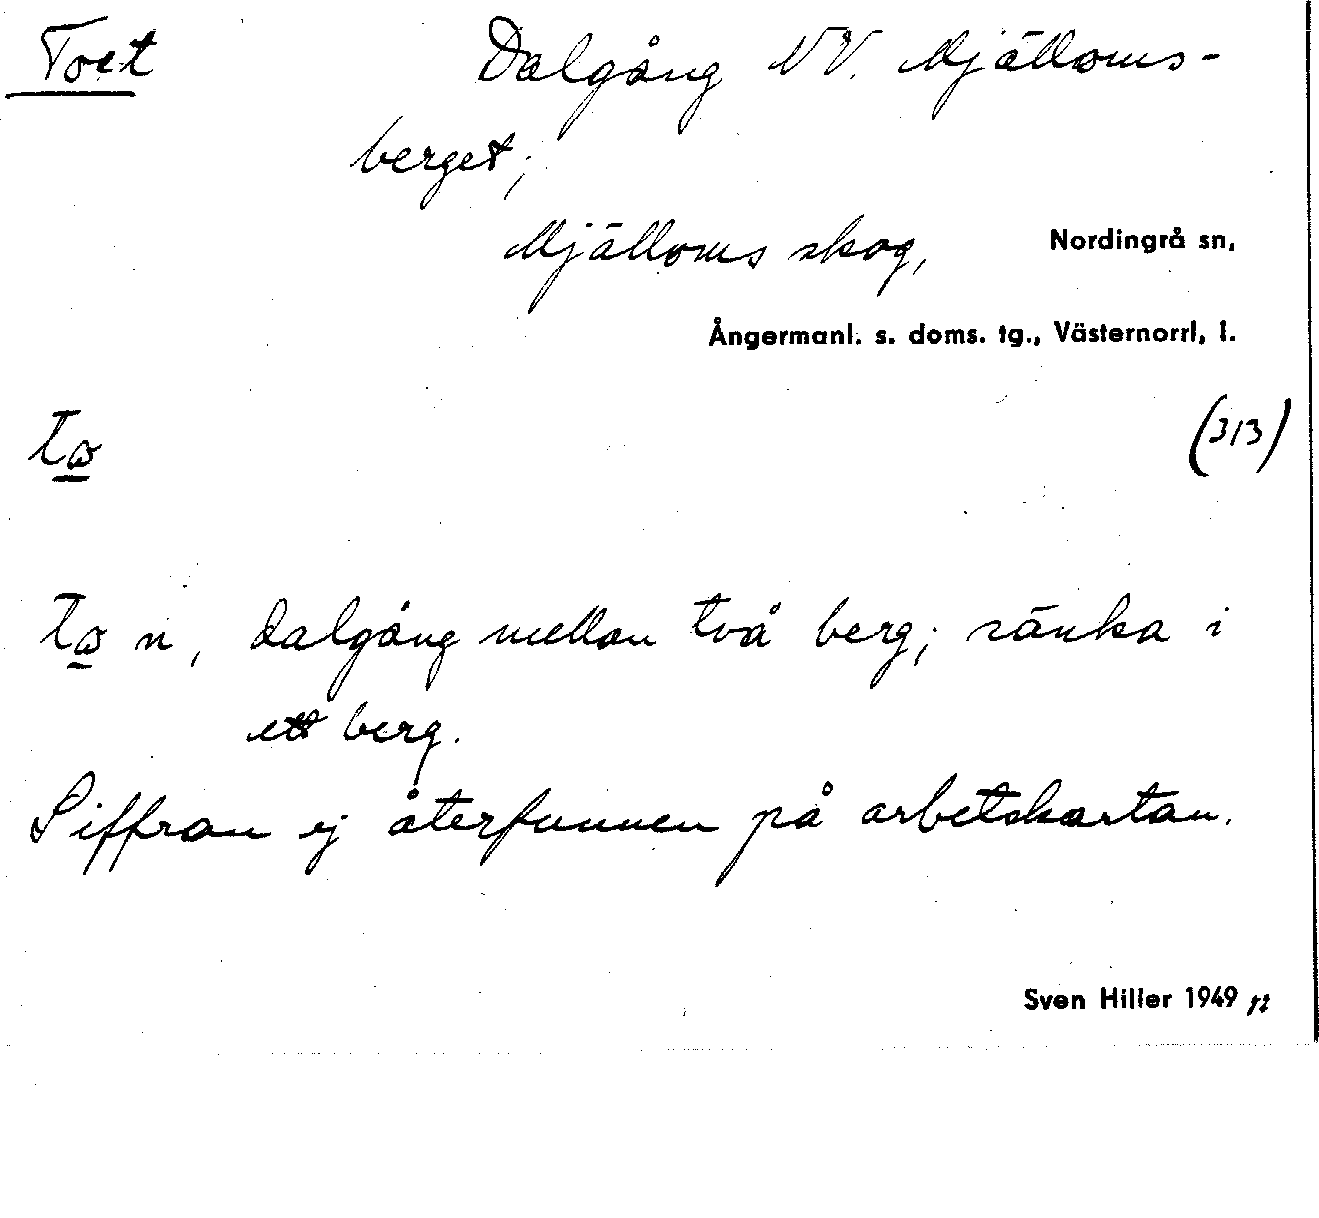 Toet Dalgång NV. Mjälloms-
berget;
Mjälloms skog, Nordingrå sn,
Ångermanl. s. doms. tg., Västernorrl, l.
(313)
n, dalgång mellan två berg; sänka i
ett berg.
Siffran ej återfunnen på arbetskartan.
Sven Hiller 1949